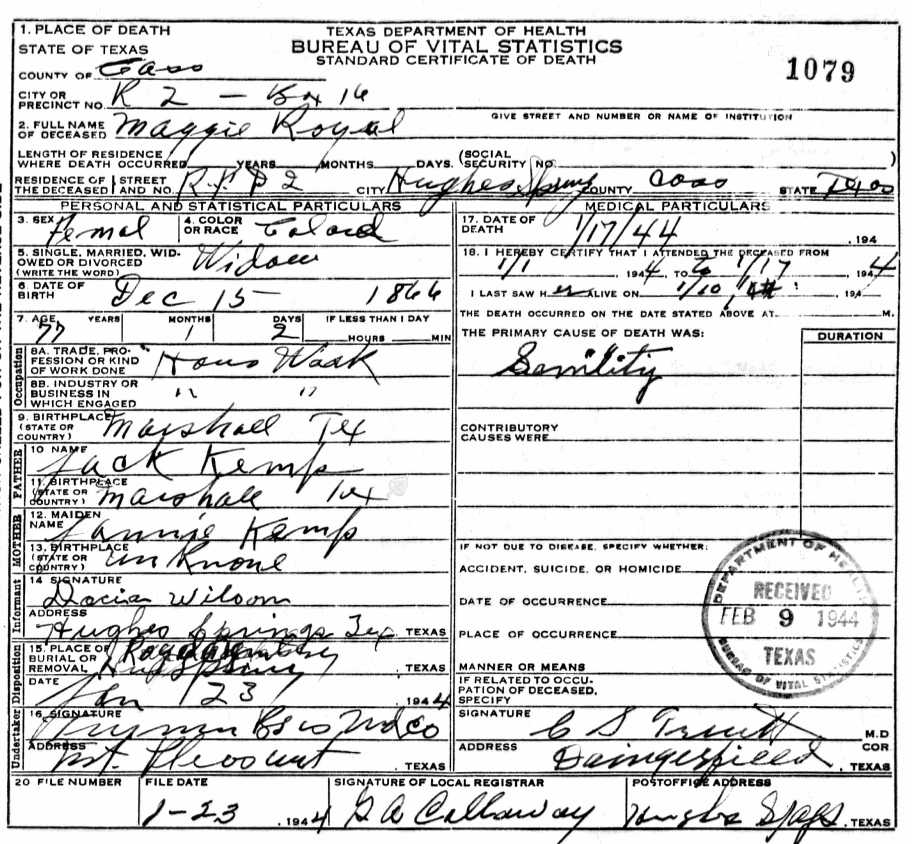 1. PLACE OF DEATH
STATE OF TEXAS
COUNTY OF Cass
TEXAS DEPARTMENT OF HEALTH
BUREAU OF VITAL STATISTICS
STANDARD CERTIFICATE OF DEATH
1079
CITY OR PRECINCT NO. R 2 — Box 16
GIVE STREET AND NUMBER OR NAME OF INSTITUTION
2. FULL NAME OF DECEASED Maggie Royal
LENGTH OF RESIDENCE WHERE DEATH OCCURRED YEARS MONTHS DAYS. (SOCIAL SECURITY NO. )
RESIDENCE OF THE DECEASED STREET AND NO. R.F.D 2 CITY Hughes Spring COUNTY Cass STATE Texas
PERSONAL AND STATISTICAL PARTICULARS
3. SEX Femal 4. COLOR OR RACE Colard
5. SINGLE, MARRIED, WIDOWED OR DIVORCED (WRITE THE WORD) Widow
6. DATE OF BIRTH Dec 15 1866
7. AGE 77 YEARS 1 MONTHS 2 DAYS IF LESS THAN 1 DAY HOURS MIN
Occupation
8A. TRADE, PROFESSION OR KIND OF WORK DONE Hous Wask
8B. INDUSTRY OR BUSINESS IN WHICH ENGAGED " "
9. BIRTHPLACE (STATE OR COUNTRY) Marshall Tex
FATHER
10 NAME Jack Kemp
11. BIRTHPLACE (STATE OR COUNTRY) Marshall Tex
MOTHER
12. MAIDEN NAME Fannie Kemp
13. BIRTHPLACE (STATE OR COUNTRY) unKnone
Informant
14 SIGNATURE Docia Wilson
ADDRESS Hughes Springs Tex TEXAS
Disposition
15. PLACE OF BURIAL OR REMOVAL , TEXAS
DATE Jan 23 1944
Undertaker
16 SIGNATURE
ADDRESS Mt. Pleasant , TEXAS
MEDICAL PARTICULARS
17. DATE OF DEATH 1/17/44 , 194
18. I HEREBY CERTIFY THAT I ATTENDED THE DECEASED FROM
1/1 , 1944, TO to 1/17 , 1944
I LAST SAW Her ALIVE ON 1/10 , 194
THE DEATH OCCURRED ON THE DATE STATED ABOVE AT M.
THE PRIMARY CAUSE OF DEATH WAS: DURATION
Senility
CONTRIBUTORY CAUSES WERE
IF NOT DUE TO DISEASE, SPECIFY WHETHER:
ACCIDENT, SUICIDE, OR HOMICIDE
DATE OF OCCURRENCE
PLACE OF OCCURRENCE
MANNER OR MEANS
IF RELATED TO OCCUPATION OF DECEASED, SPECIFY
SIGNATURE C S Truitt M.D
ADDRESS Daingerfield COR , TEXAS
DEPARTMENT OF HEALTH
RECEIVED
FEB 9 1944
TEXAS
BUREAU OF VITAL STATISTICS
20 FILE NUMBER
FILE DATE 1-23 , 1944
SIGNATURE OF LOCAL REGISTRAR G A Callaway
POSTOFFICE ADDRESS Hughes Spgs , TEXAS